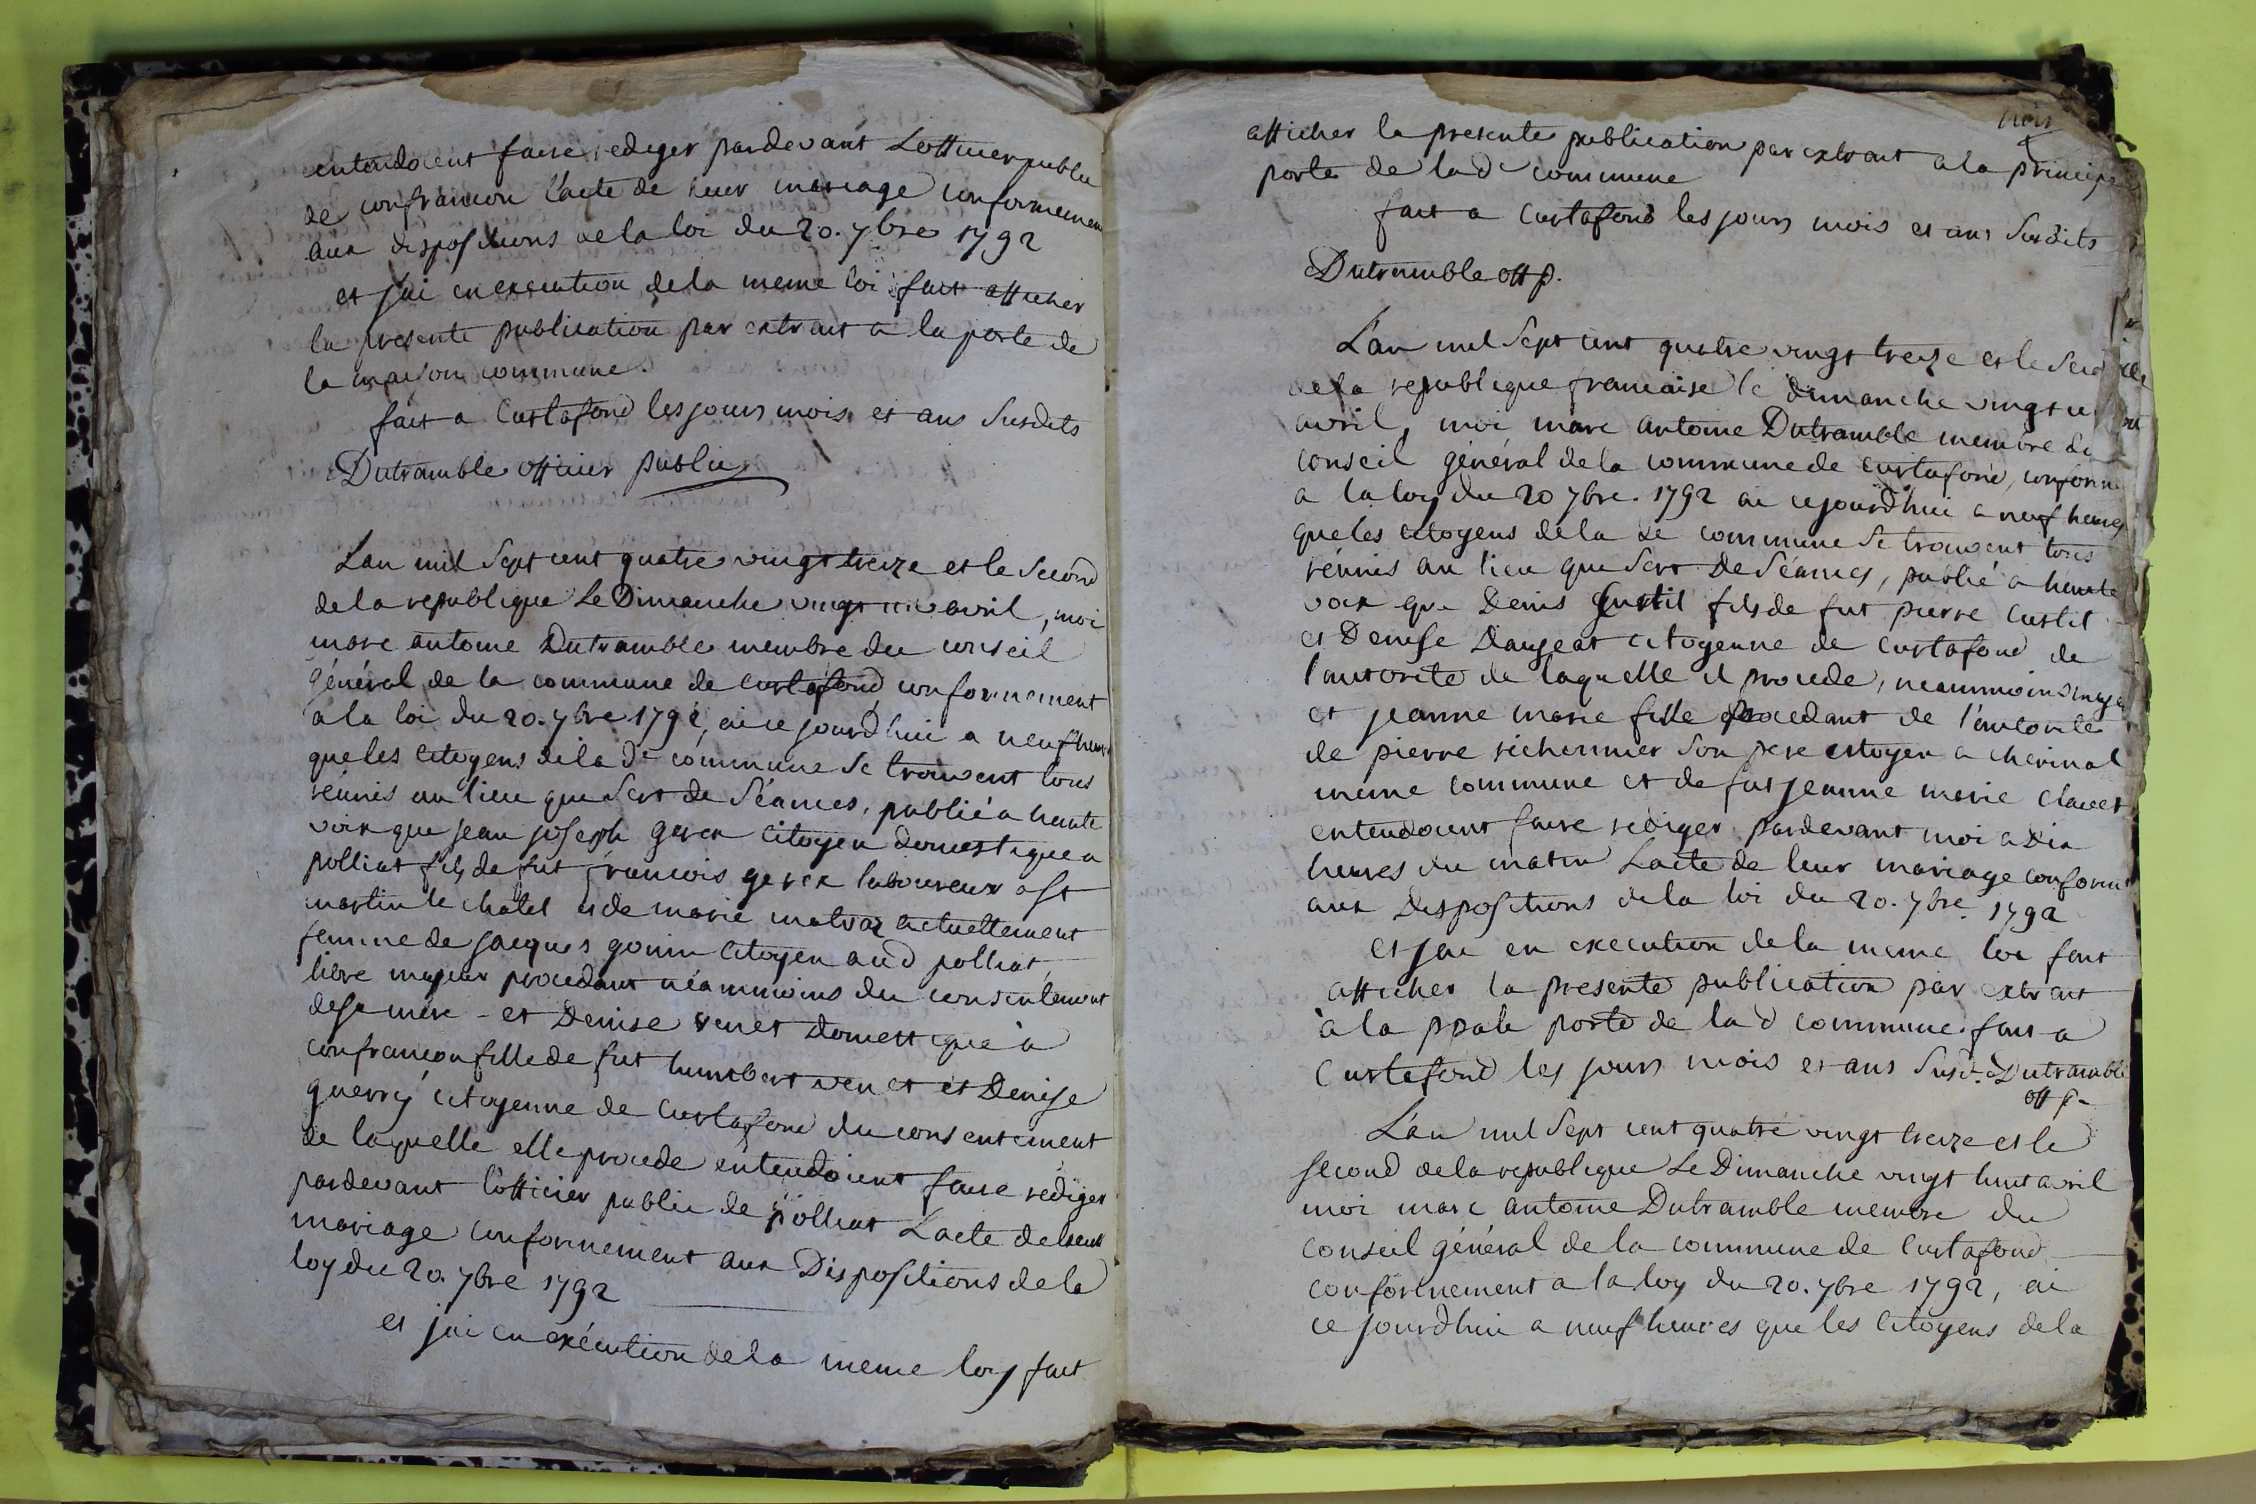 entendoient faire rediger pardevant L'officier public
de confrancon l'acte de leur mariage conformemen
aux dispositions de la loi du 20. 7bre 1792
et jai en execution de la meme loi fait afficher
la presente publication par extrait a la porte de
la maison commune
fait a Curtafond les jours mois et ans susdits
Dutramble officier public
L'an mil sept cent quatre vingt treize et le second
de la republique Le Dimanche vingt un avril, moi
marc antoine Dutramble membre du conseil
général de la commune de curtafond conformement
a la loi du 20. 7bre 1792, ai ce jourd'hui a neuf heures
que les citoyens de la de commune se trouvent tous
réunis au lieu que sert de séances, publié a haute
voix que jean joseph gerex citoyen domestique a
polliat fils de fut francois gerex laboureur a st
martin le chatel et de marie actuellement
femme de jacques gonin citoyen aud polliat,
libre majeur procedant néammoins du consentement
de sa mère - et Denise venet domestique à
confrancon fille de fut humbert venet et Denise
guerry citoyenne de curtafond du consentement
de laquelle elle procede entendoient faire rediger
pardevant l'officier public de polliat L'acte de leur
mariage conformement aux Dispositions de la
loy du 20. 7bre 1792
et jai en exécution de la meme loy fait
afficher la presente publication par extrait a la principa
porte de la de commune
fait a curtafond les jours mois et ans susdits
Dutramble off p.
L'an mil sept cent quatre vingt treize et le second
de la republique francaise le dimanche vingt un
avril, moi marc antoine Dutramble membre du
conseil général de la commune de curtafond, conform
a la loy du 20 7bre. 1792 ai cejourd'hui a neuf heures
que les citoyens de la de commune se trouvent tous
réunis au lieu que sert De séances, publié a haute
voix que Denis Curtil fils de fut pierre Curtil
et Denise Daujeat citoyenne de curtafond de
l'autorité de laquelle il procede, neammoins
et jeanne marie fille procedant de l'autorité
de pierre richonnier son pere citoyen a cherinal
meme commune et de fut jeanne marie claret
entendoient faire rédiger pardevant moi a Dix
heures du matin L'acte de leur mariage conform
aux Dispositions de la loi du 20. 7bre. 1792
et jai en execution de la meme loi fait
afficher la presente publication par extrait
à la ppale porte de la d commune. fait a
Curtafond les jours mois et ans susd. Dutramble
off p -
L'an mil sept cent quatre vingt treize et le
second de la republique Le Dimanche vingt huit avril
moi marc antoine Dutramble membre du
conseil général de la commune de Curtafond
conformement a la loy du 20. 7bre 1792, ai
ce jourd'hui a neuf heures que les citoyens de la